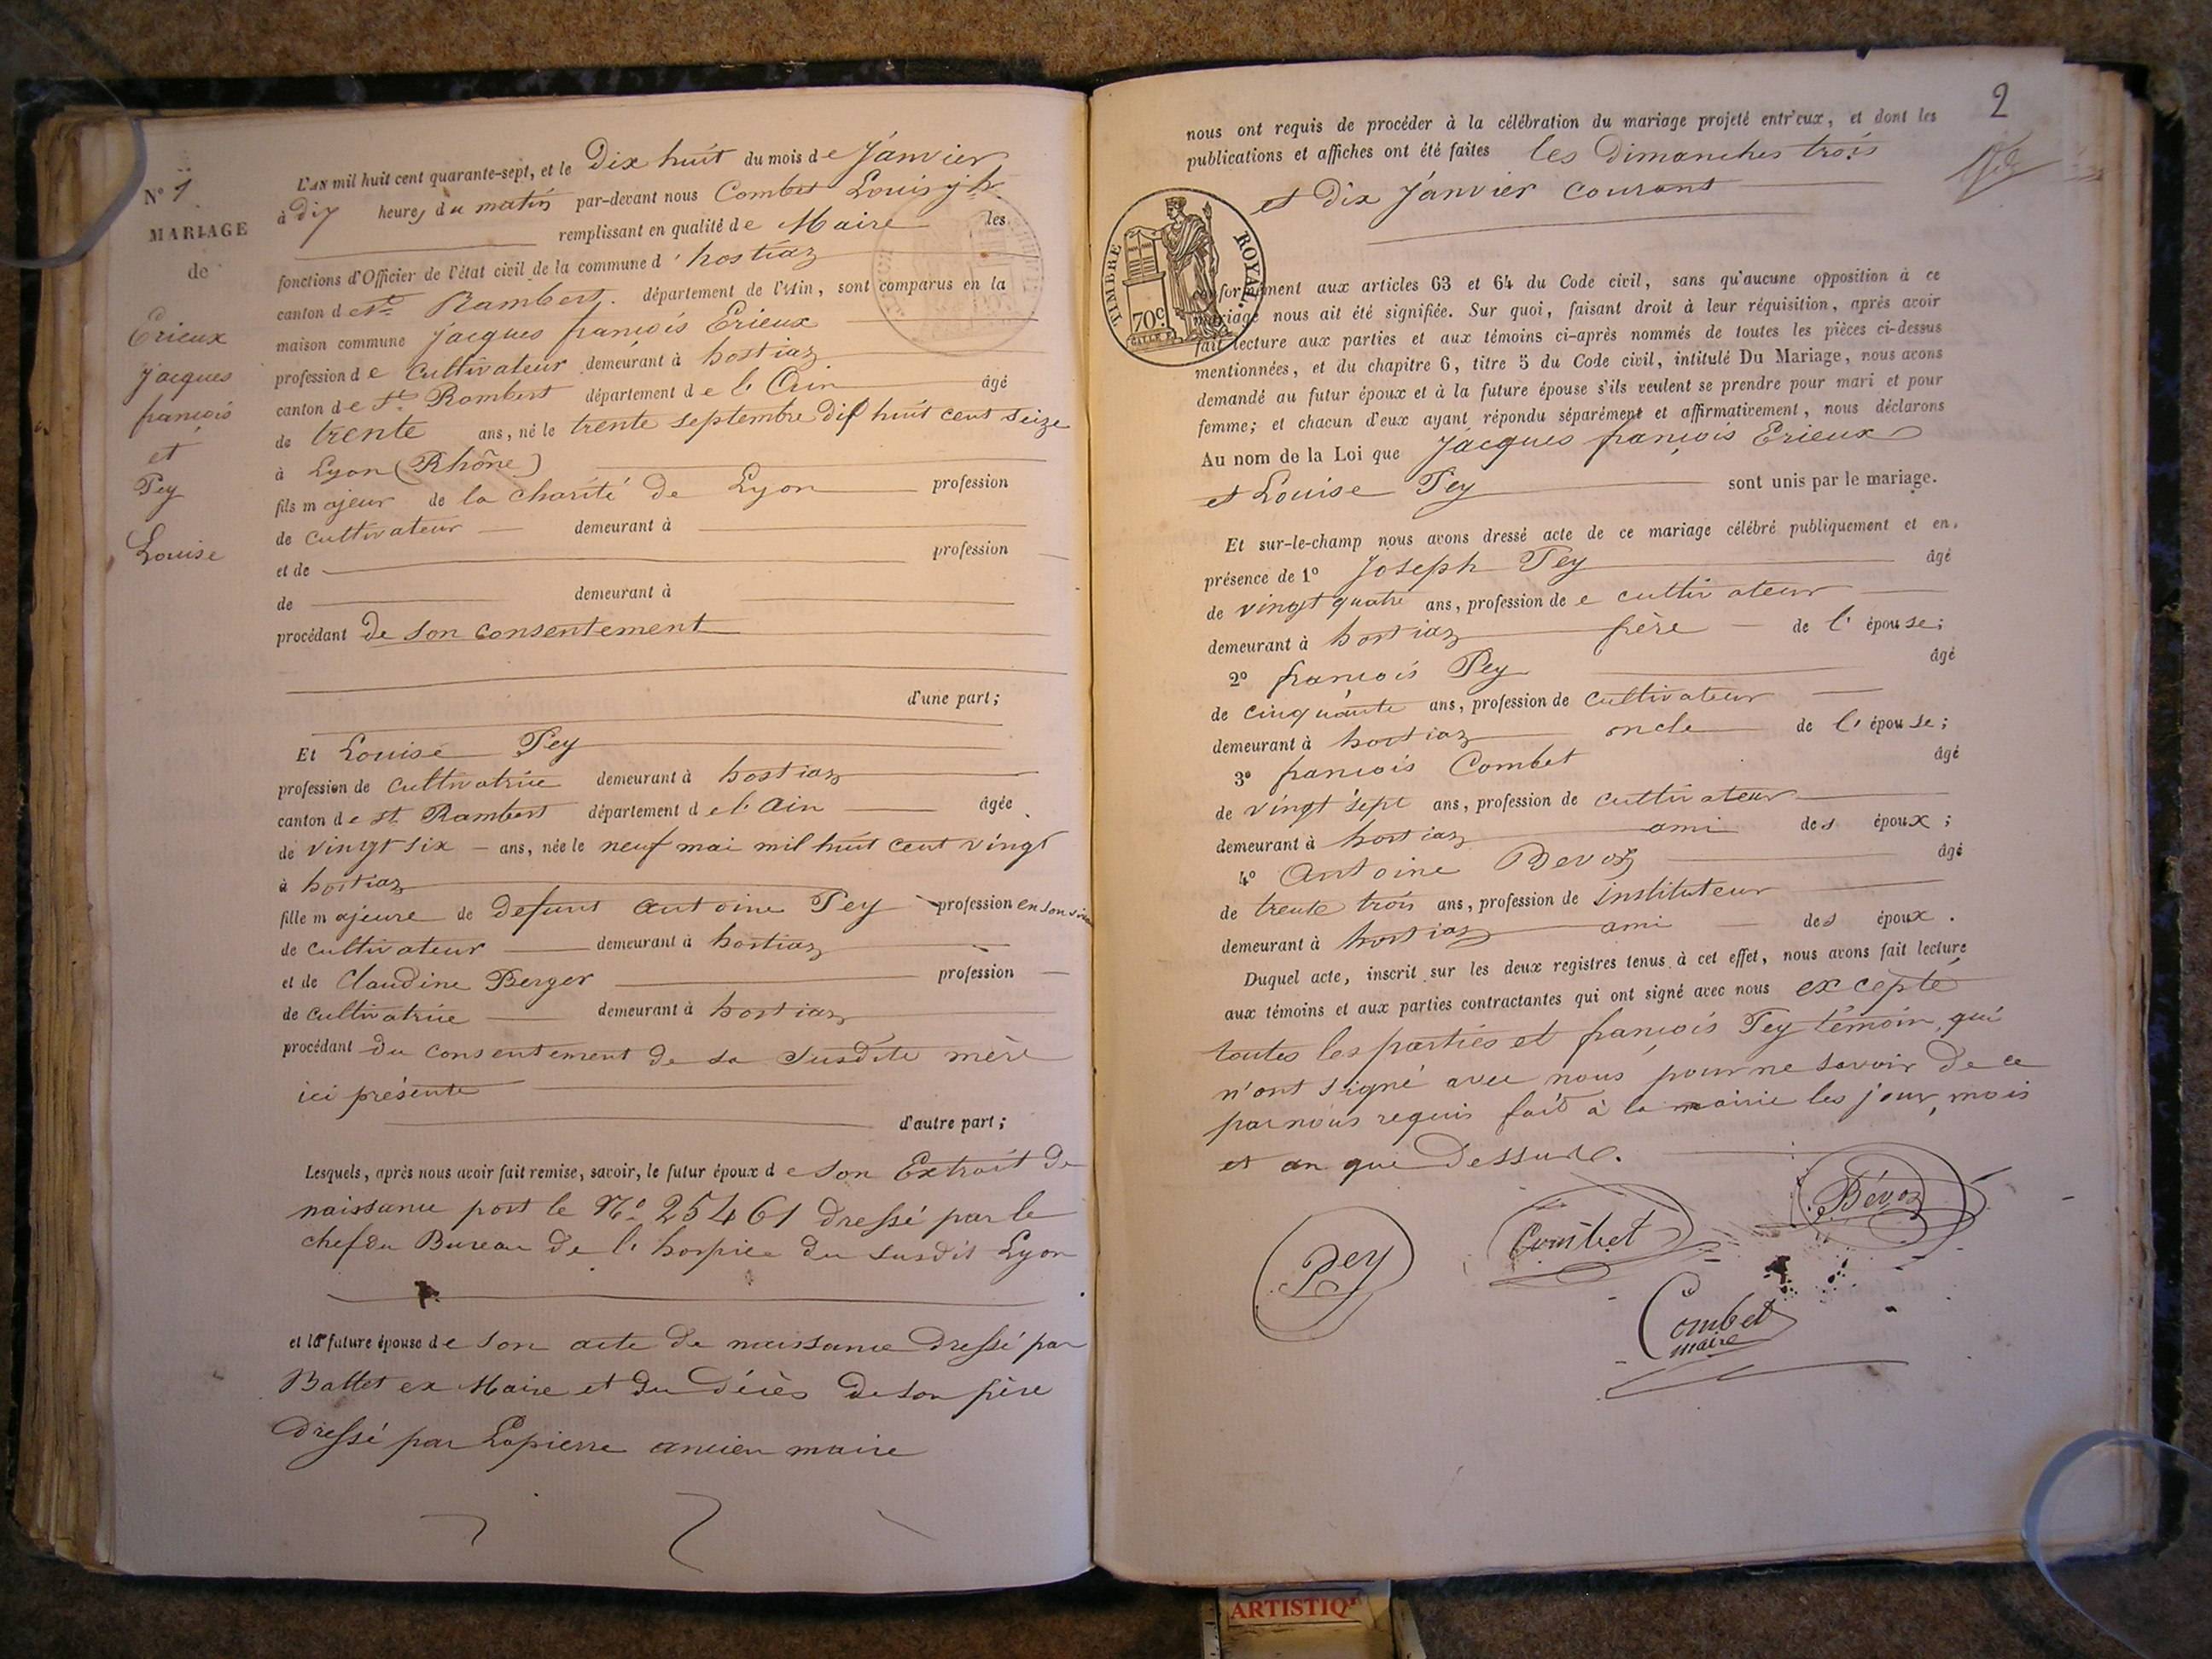 N° 1
MARIAGE
de
Erieux
Jacques
françois
et
Pey
Louise
L'AN mil huit cent quarante-sept, et le Dix huit du mois de Janvier
à dix heures du matin par-devant nous Combet Louis jh
remplissant en qualité de Maire les
fonctions d'Officier de l'état civil de la commune d'hostiaz
canton de St Rambert département de l'Ain, sont comparus en la
maison commune Jacques françois Erieux
profession de Cultivateur demeurant à hostiaz
canton de St Rambert département de l'Ain âgé
de trente ans, né le trente septembre dix huit cent seize
à Lyon (Rhône)
fils majeur de la charité de Lyon profession
de cultivateur demeurant à
et de profession
de demeurant à
procédant de son consentement
d'une part;
Et Louise Pey
profession de cultivatrice demeurant à hostiaz
canton de st Rambert département de l'Ain âgée
de vingt six ans, née le neuf mai mil huit cent vingt
à hostiaz
fille majeure de defunt antoine Pey profession en son
de cultivateur demeurant à hostiaz
et de Claudine Berger profession
de cultivatrice demeurant à hostiaz
procédant du consentement de sa susdite mère
ici présente
d'autre part;
Lesquels, après nous avoir fait remise, savoir, le futur époux de son Extrait de
naissance port le N° 25461 dressé par le
chef du Bureau de l'hospice du susdit Lyon
et la future épouse de son acte de naissance dressé par
Ballet ex Maire et du décès de son père
dressé par Lapierre ancien maire
2
nous ont requis de procéder à la célébration du mariage projeté entr'eux, et dont les
publications et affiches ont été faites les dimanches trois
et dix Janvier courant
TIMBRE ROYAL.
70c
conformément aux articles 63 et 64 du Code civil, sans qu'aucune opposition à ce
mariage nous ait été signifiée. Sur quoi, faisant droit à leur réquisition, après avoir
fait lecture aux parties et aux témoins ci-après nommés de toutes les pièces ci-dessus
mentionnées, et du chapitre 6, titre 5 du Code civil, intitulé Du Mariage, nous avons
demandé au futur époux et à la future épouse s'ils veulent se prendre pour mari et pour
femme; et chacun d'eux ayant répondu séparément et affirmativement, nous déclarons
Au nom de la Loi que Jacques françois Erieux
et Louise Pey sont unis par le mariage.
Et sur-le-champ nous avons dressé acte de ce mariage célébré publiquement et en
présence de 1° Joseph Pey âgé
de vingt quatre ans, profession de e cultivateur
demeurant à hostiaz frère de l'épouse;
2° françois Pey âgé
de cinquante ans, profession de cultivateur
demeurant à hostiaz oncle de l'épouse;
3° françois Combet âgé
de vingt sept ans, profession de cultivateur
demeurant à hostiaz ami des époux;
4° Antoine Bevoz âgé
de trente trois ans, profession de instituteur
demeurant à hostiaz ami des époux.
Duquel acte, inscrit sur les deux registres tenus à cet effet, nous avons fait lecture
aux témoins et aux parties contractantes qui ont signé avec nous excepté
toutes les parties et françois Pey témoin qui
n'ont signé avec nous pour ne savoir de ce
par nous requis fait à la mairie les jour, mois
et an que dessus.
Pey
Combet
Bévoz
Combet
maire
ARTISTIQ